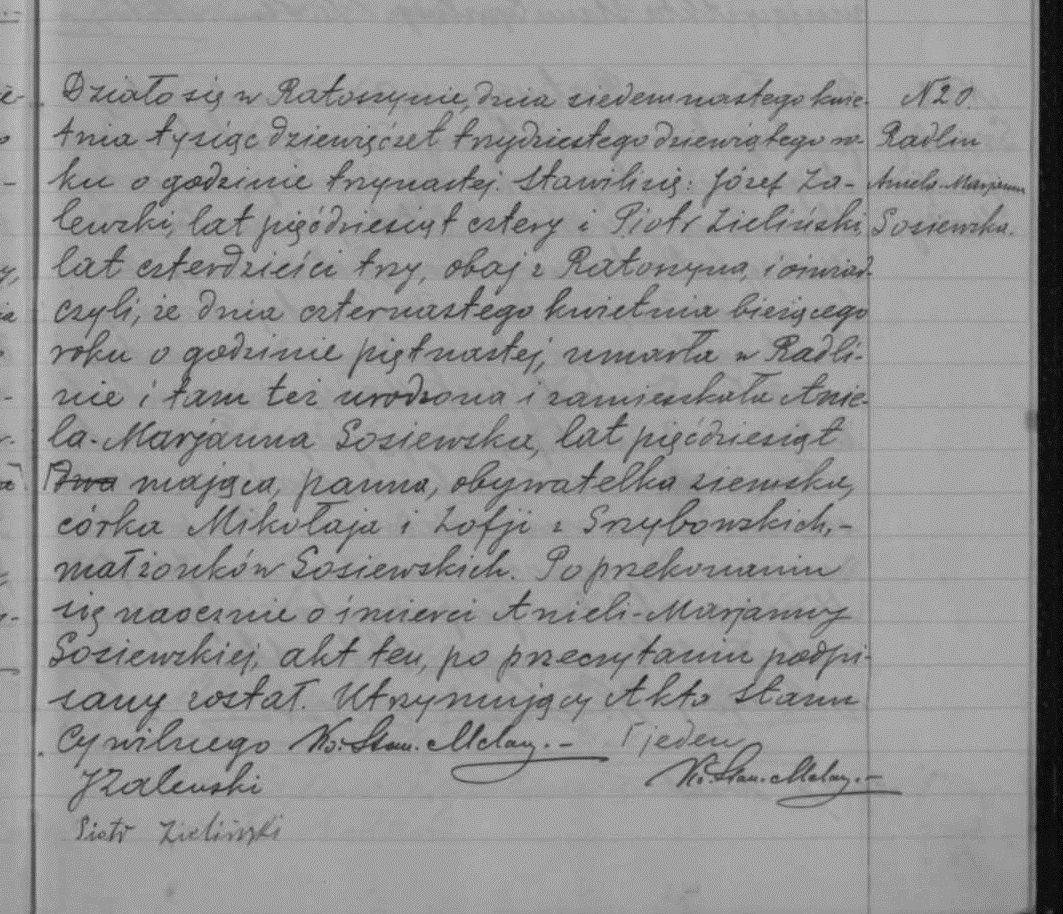 Działo się w Ratoszynie, dnia siedemnastego kwie-
tnia tysiąc dziewięćset trzydziestego dziewiątego ro-
ku o godzinie trzynastej. Stawili się: Józef Za-
lewski, lat pięćdziesiąt cztery i Piotr Zieliński,
lat czterdzieści trzy, obaj z Ratoszyna, i oświad-
czyli, że dnia czternastego kwietnia bieżącego
roku o godzinie piętnastej, umarła w Radli-
nie i tam też urodzona i zamieszkała Anie-
la-Marjanna Sosiewska, lat pięćdziesiąt
Γ dwa mająca, panna, obywatelka ziemska,
córka Mikołaja i Zofji z Grzybowskich,-
małżonków Sosiewskich. Po przekonaniu
się naocznie o śmierci Anieli-Marjanny
Sosiewskiej, akt ten, po przeczytaniu podpi-
sany został. Utrzymujący Akta Stanu
Cywilnego Ks. Stan. -
Γ jeden
Ks. Stan. -
JZalewski
Piotr Zieliński
N 20.
Radlin
Aniela-Marjanna
Sosiewska.